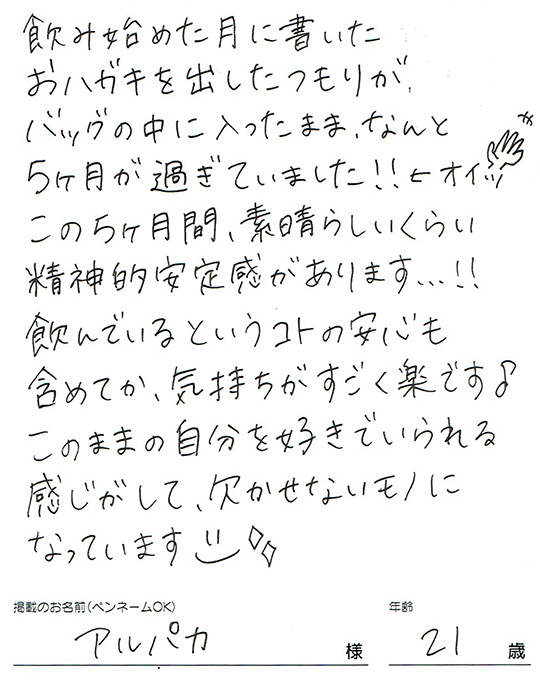 飲み始めた月に書いた
おハガキを出したつもりが、
バッグの中に入ったまま、なんと
5ヶ月が過ぎていました!!←オイッ
この5ヶ月間、素晴らしいくらい
精神的安定感があります…!!
飲んでいるというコトの安心も
含めてか、気持ちがすごく楽です♪
このままの自分を好きでいられる
感じがして、欠かせないモノに
なっています
掲載のお名前(ペンネームOK)
年齢
アルパカ 様
21 歳